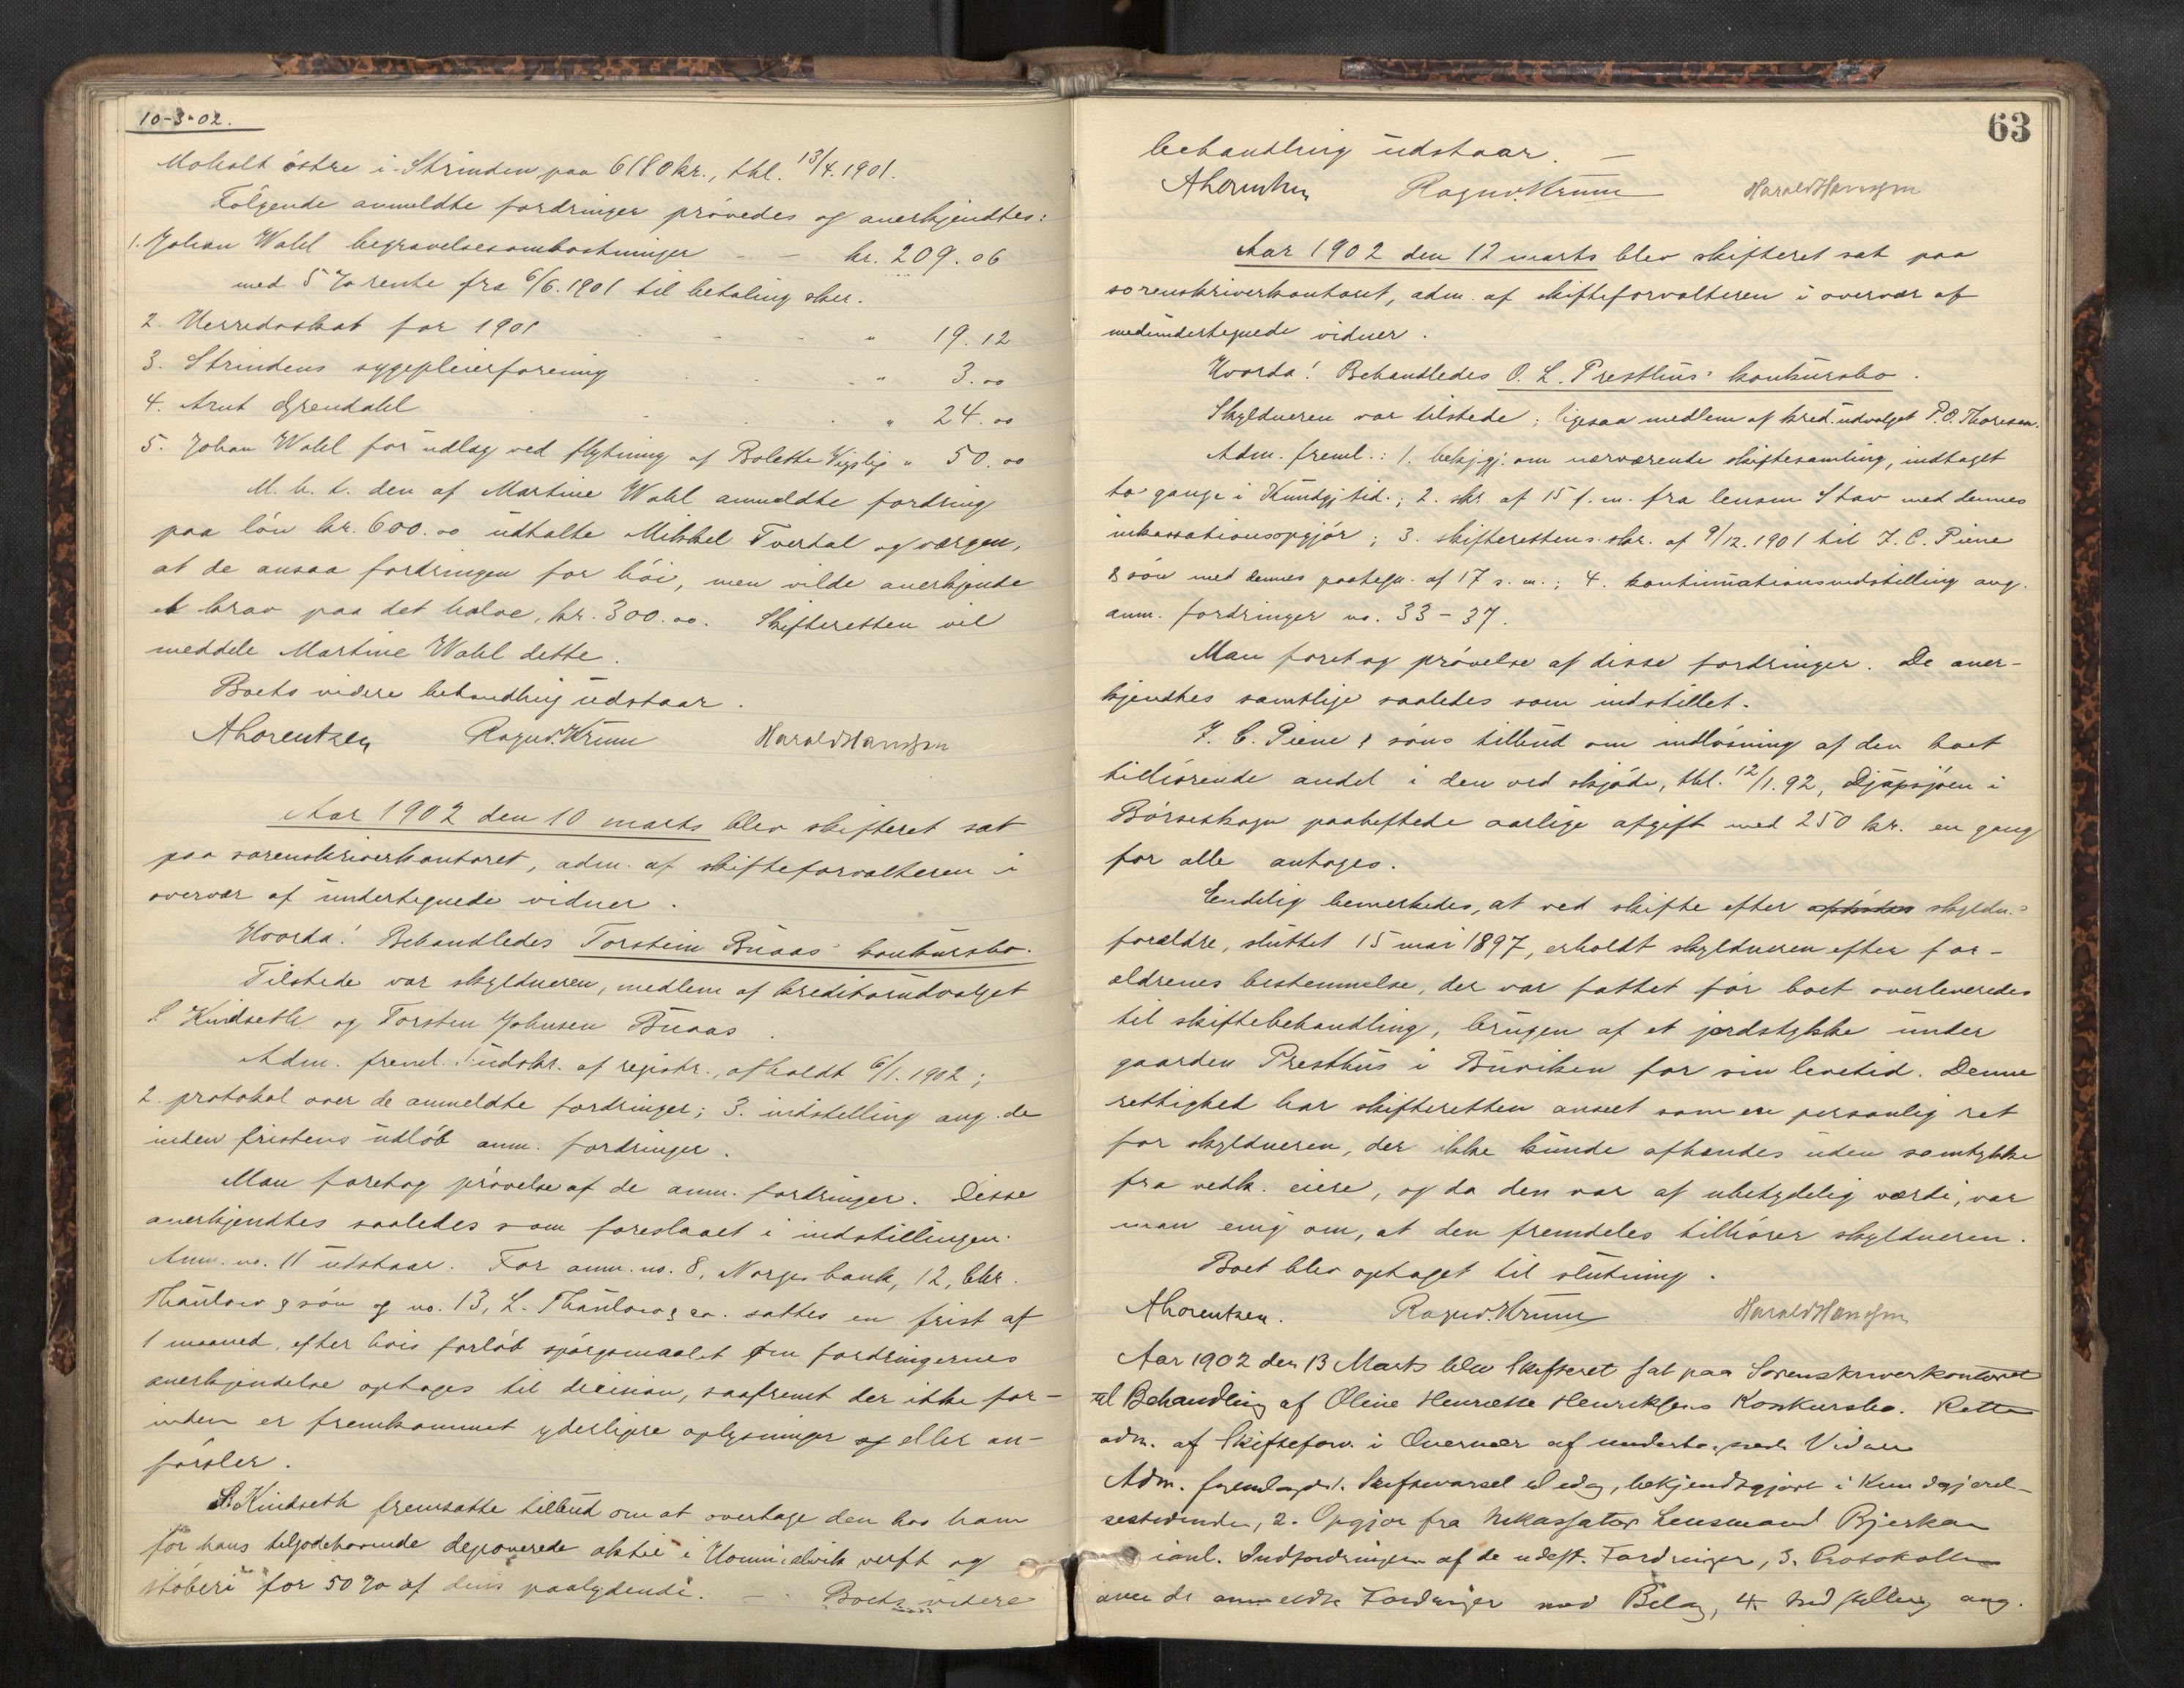 10-3-02.
Moholt östre i Strinden paa 6180 kr., thl. 13/4. 1901.
Følgende anmeldte fordringer prövedes og anerkjendtes:
1. Johan Wahl begravelsesomkostninger - - kr. 209.06
med 5 % rente fra 6/6. 1901 til betaling sker.
2. Herredsskat for 1901 - - " 19.12
3. Strindens sygepleierforening - - " 3.00
4. Arnt Grendahl - - " 24.00
5. Johan Wahl for udlæg ved flytning af Bolette " 50.00
M. h. t. den af Martine Wahl anmeldte fordring
paa lön kr. 600.00 udtalte Mikkel Tvertal og værgen,
at de ansaa fordringen for höi, men vilde anerkjende
et krav paa det halve, kr. 300.00. Skifteretten vil
meddele Martine Wahl dette.
Boets videre behandling udstaar.
ALorentzen Ragnv. Krum Harald Hansen
Aar 1902 den 10 marts blev skifteret sat
paa sorenskriverkontoret, adm. af skifteforvalteren i
overvær af undertegnede vidner.
Hvorda! Behandledes Torstein Buaas' konkursbo.
Tilstede var skyldneren, medlem af kreditorudvalget
S. Kindseth og Torsten Johnsen Buaas.
Adm. freml. 1. udskr. af registr., afholdt 6/1. 1902;
2. protokol over de anmeldte fordringer; 3. indstilling ang. de
inden fristens udløb anm. fordringer.
Man foretog prövelse af de anm. fordringer. Disse
anerkjendtes saaledes som foreslaaet i indstillingen.
Anm. no. 11 udstaar. For anm. no. 8, Norges bank, 12, Chr.
Thaulow & sön og no. 13, L. Thaulow & co. sattes en frist af
1 maaned, efter hvis forløb spörgsmaalet om fordringernes
anerkjendelse optages til decision, saafremt der ikke for-
inden er fremkommet yderligere oplysninger og eller an-
försler.
S. Kindseth fremsatte tilbud om at overtage den hos ham
for hans tilgodehavende deponerede aktie i Hommelvik verft og
støberi for 50 % af dens paalydende. - Boets videre
63
behandling udstaar. -
ALorentzen Ragnv. Krum Harald Hansen
Aar 1902 den 12 marts blev skifteret sat paa
sorenskriverkontoret, adm. af skifteforvalteren i overvær af
medundertegnede vidner.
Hvorda! Behandledes O. L. Presthus' konkursbo.
Skyldneren var tilstede; ligesaa medlem af kred.udvalget P. O. Thoresen.
Adm. freml.: 1. bekjgj. om nærværende skiftesamling, indtaget
to gange i Kundgj.tid.; 2. skr. af 15 f. m. fra lensm. Stav med dennes
inkassationsopgjör; 3. skifterettens skr. af 9/12. 1901 til I. C. Piene
& sön med dennes paategn. af 17 s. m.; 4. kontinuationsindstilling ang.
anm. fordringer no. 33 - 37.
Man foretog prövelse af disse fordringer. De aner-
kjendtes samtlige saaledes som indstillet.
I. C. Piene & söns tilbud om indløsning af den boet
tilhörende andel i den ved skjöde, thl. 12/1. 92, i
Börseskogn paaheftede aarlige afgift med 250 kr. en gang
for alle antoges.
Endelig bemerkedes, at ved skifte efter skyldn.'
forældre, sluttet 15 mai 1897, erholdt skyldneren efter for-
ældrenes bestemmelse, der var fattet för boet overleveredes
til skiftebehandling, brugen af et jordstykke under
gaarden Presthus i Buviken for sin levetid. Denne
rettighed har skifteretten anseet som en personlig ret
for skyldneren, der ikke kunde afhændes uden samtykke
fra vedk. eiere, og da den var af ubetydelig værdi, var
man enig om, at den fremdeles tilhörer skyldneren.
Boet blev optaget til slutning.
ALorentzen. Ragnv. Krum Harald Hansen
Aar 1902 den 13 Marts blev Skifteret sat paa Sorenskriverkontoret
til Behandling af Oline Henriette Henriksens Konkursbo. Retten
adm. af Skifteforv. i Overvær af undertegnede Vidner
Adm. fremlagde 1. Skiftevarsel til idag, bekjendtgjort i Kundgjørel-
sestidende, 2. Opgjør fra Inkassator Lensmand Bjerkan
ianl. Indfordringen af de udest. Fordringer, 3. Protokollen
over de anmeldte Fordringer med Bilag, 4 Indstilling ang.